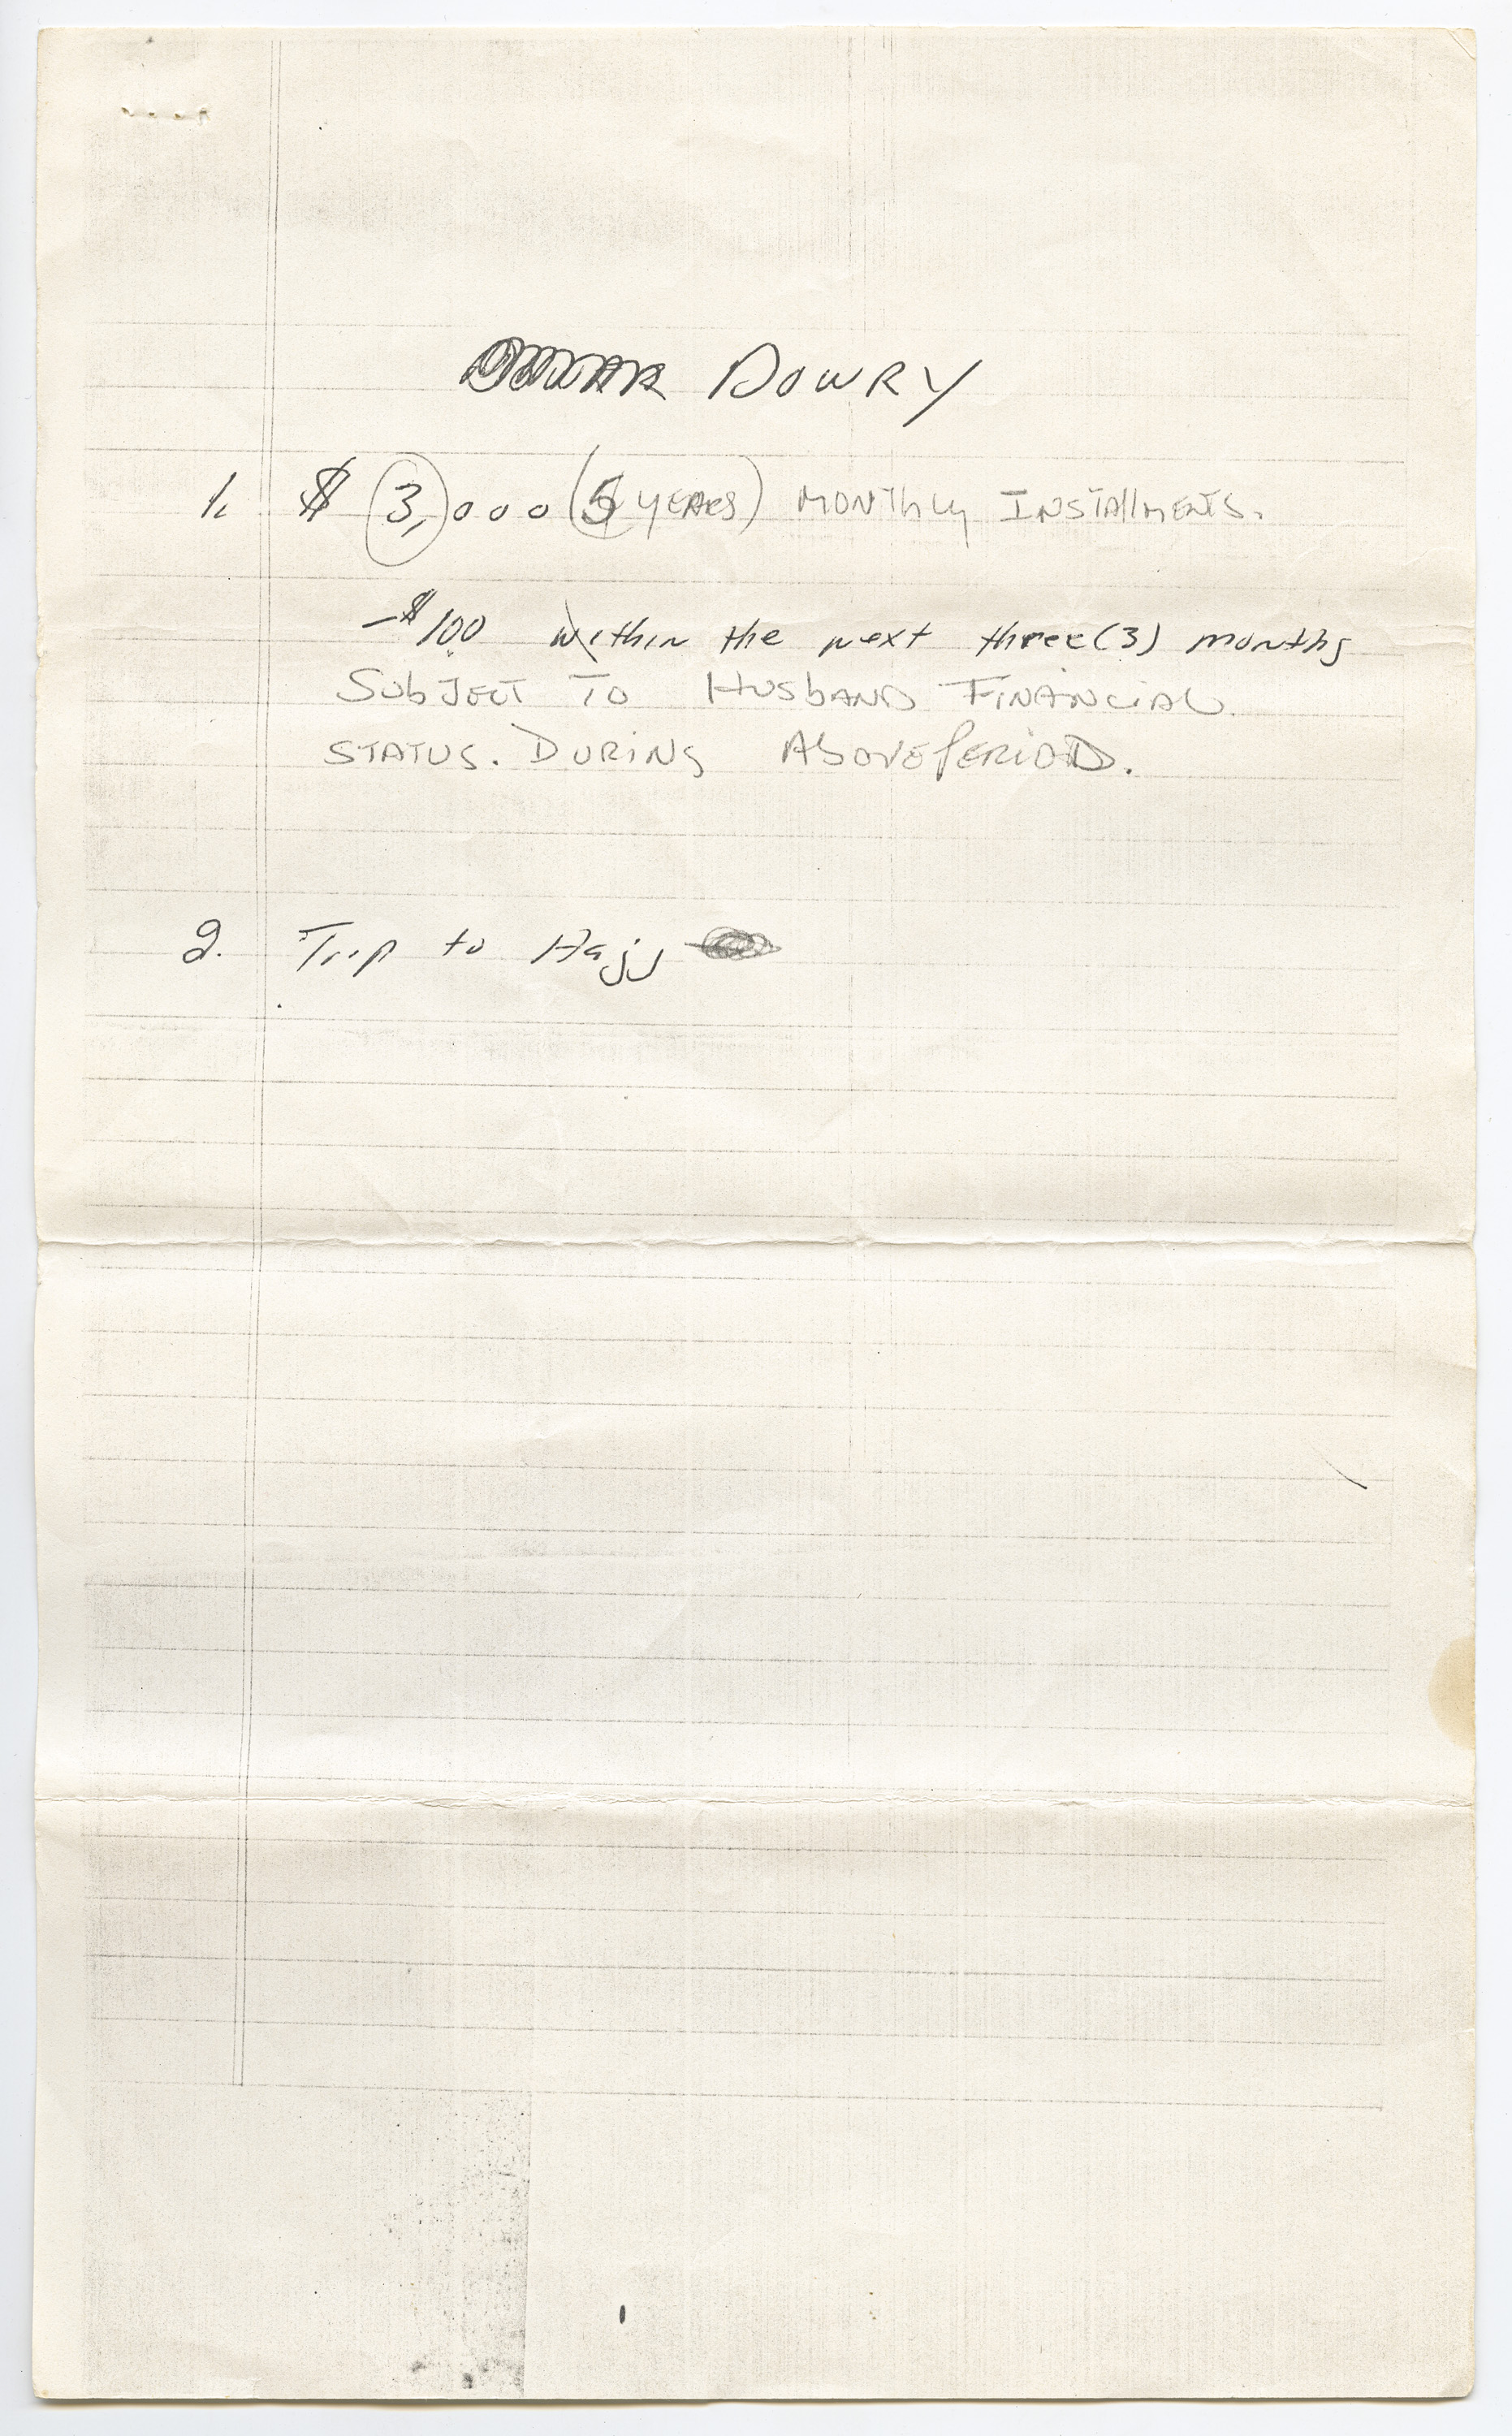 DOWRY
1. $ 3,000 (5 YEARS) MONThly INSTAllMENTS.
-$100 within the next three(3) months
SubJECT TO HusbAND FINANCIAL
STATUS. DURING AbovePERIOD.
2. Trip to Hajj